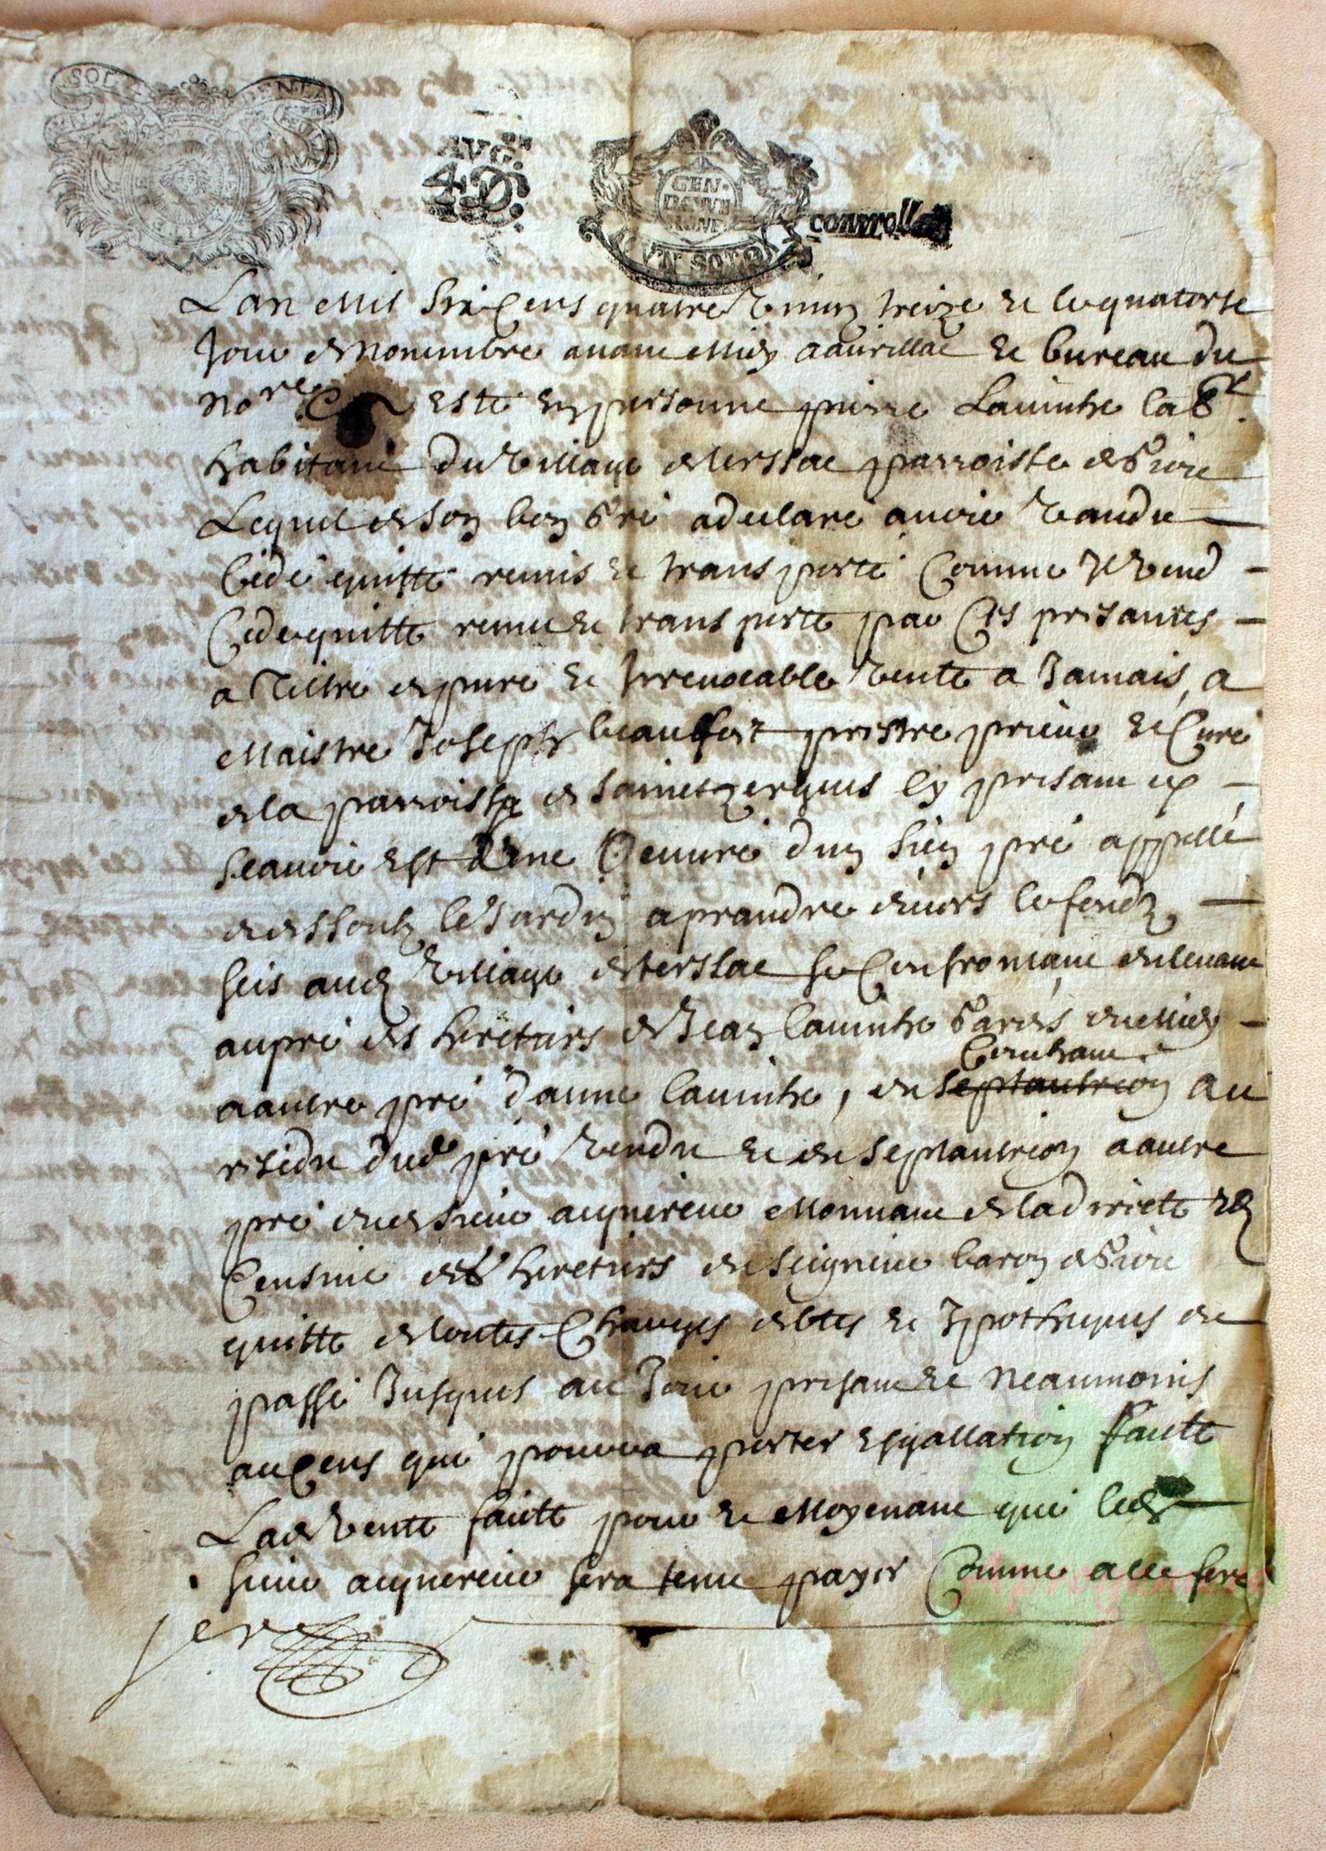 AVG.
4 D.
GEN.
VN SOL
controllé
Lan Mil Six Cens quatre Vingz treize et le quatorse
Jour de Novembre avant Midy a aurillac et bureau du
No.re este en personne pierre Lavinhe lab.r
habitant du Village de Terssac parroiste de
Lequel de son bon gré a declaré avoir Vandu
Cedé quitté remis et transporté Comme Il Vend
Cede quitte remet et transporte par Ces presantes
a Tiltre de pure et Irrevocable Vente a Jamais, a
Maistre Joseph beaufort prestre prieur et Curé
de la parroisse de Sainct Ly presant
Scavoir Est d'une Oeuvre dun sien pré appellé
de dessoubz le Jardin a prandre devers le fondz
seis aud Village de Terssac se Confrontant du levant
au pré des heretiers de Jean lavinhe du Midy
Couchant
a autre pré d'anne lavinhe, du septantrion au
residu dud pré Vendu et du septantrion a autre
pré dud sieur aquereur Mouvant de la directe et
Censive des heretiers du seigneur baron de
quitte de toutes Charges debtes et Ipotheques du
passé Jusques au Jour presant et neaumoins
au Cens qui pourra porter Esgallation faitte
Lad Vente faitte pour et Moyenant que led
sieur aquereur sera tenu payer Comme